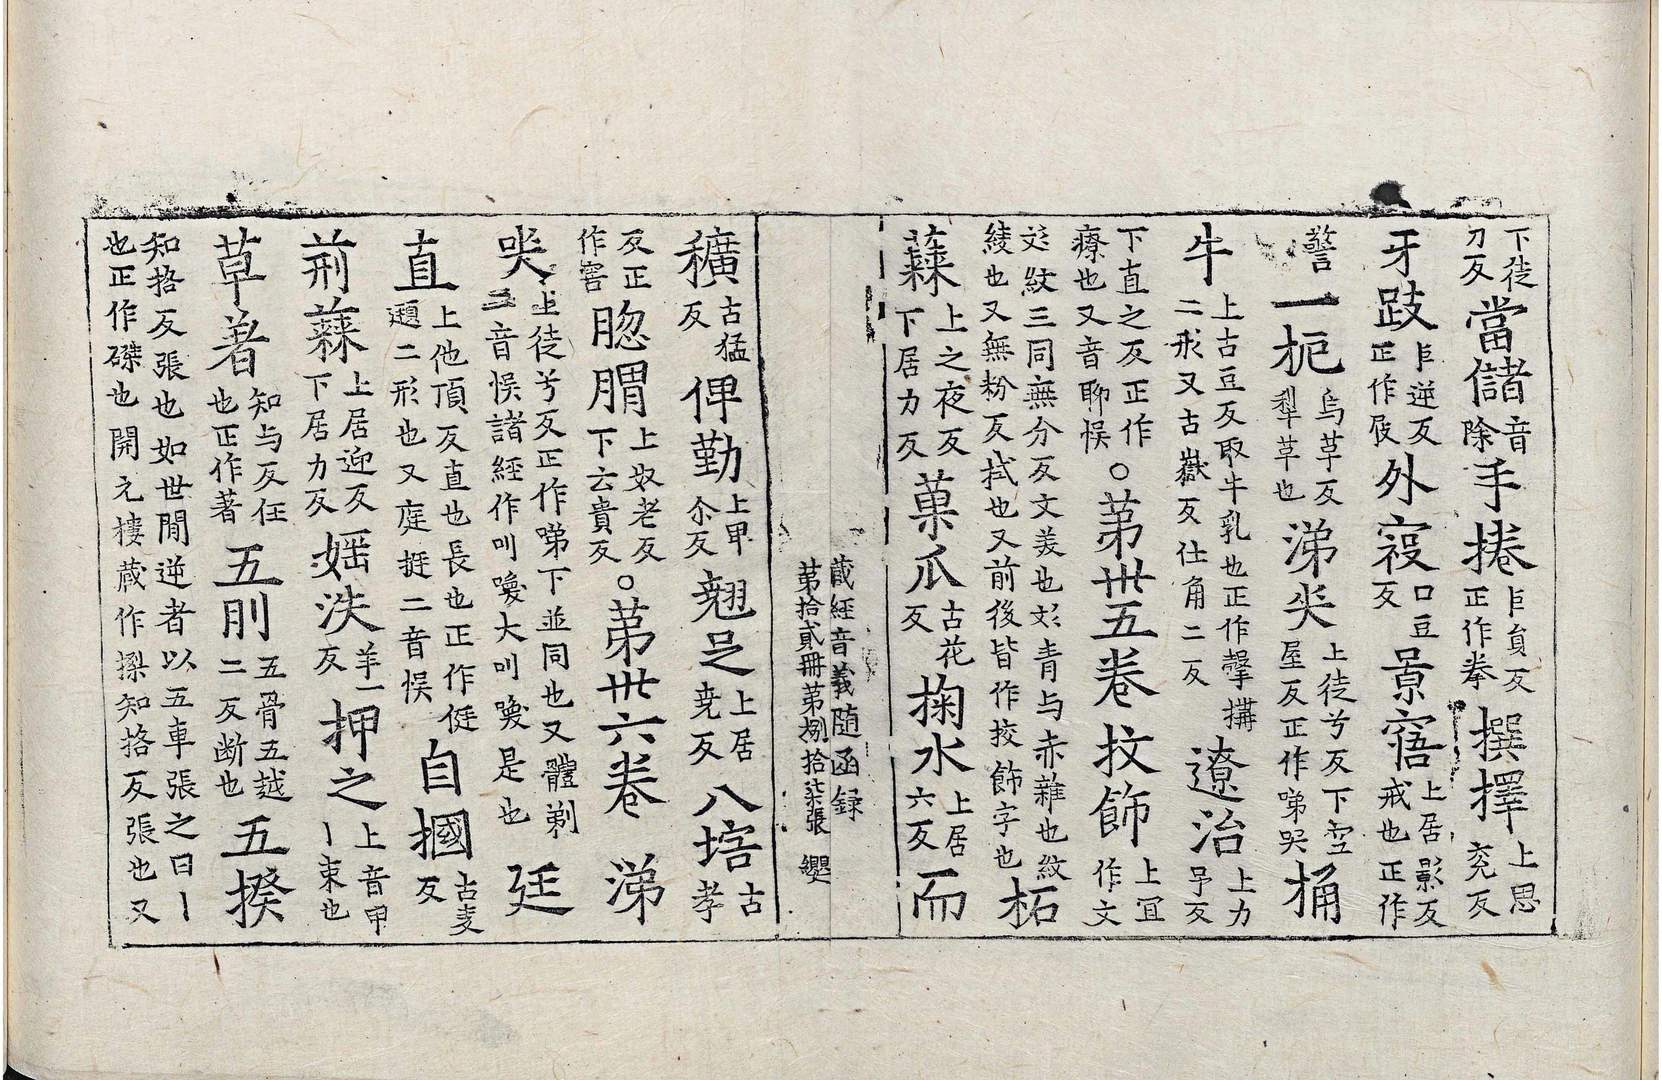 下徒刀反當儲音除手捲巨貟反正作拳撰擇上思兖反
牙跂巨逆反正作屐外㝅口豆反景寤上居影反戒也正作
警一枙烏革反犁草也涕㖦上徒兮反下空屋反正作啼哭捅
牛上古豆反取牛乳也正作㝅搆二形又古嶽反仕角二反遼治上力予反
下直之反正作療也又音聊悮○苐卅五卷抆飾上冝作文
彣紋三同無分反文美也彣青与赤雜也紋綾也又無粉反拭也又前後皆作挍飾字也柘
䕼上之夜反下居力反菓爪古花反掬水上居六反而
蔵經音義随函録
苐拾貳冊苐捌拾柒張 纓
穬古猛反俾勤上甲尒反翹足上居尭反八㙂古孝
反正作窖腦胃上奴老反下云貴反○苐卅六卷 涕
㖦上徒兮反正作啼下並同也又體剃二音悮諸經作叫喚大叫喚是也 廷
直上他頂反直也長也正作侹頲二形也又庭挺二音悮自摑古麦反
荊䕼上居迎反下居力反婬泆羊一反押之上音甲丨束也
草著知与反任也正作著五刖五骨五越二反断也五揆
知挌反張也如世間逆者以五車張之曰丨也正作磔也開元樓蔵作搩知挌反張也又